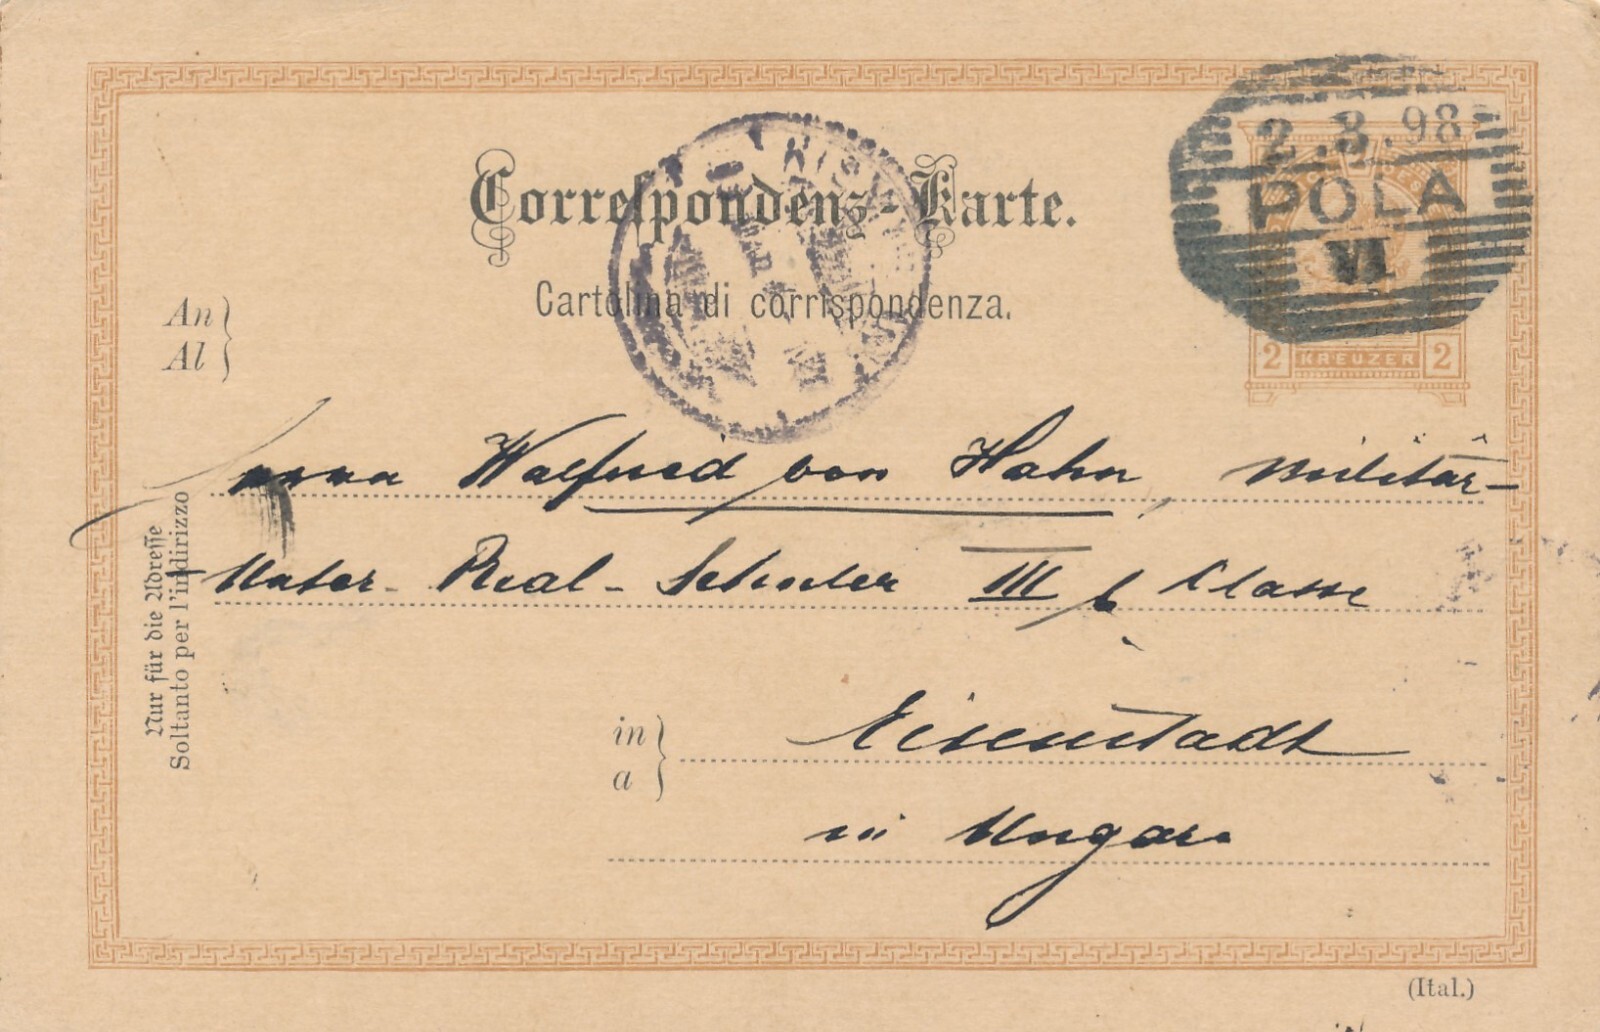 2.3.98
POLA
VI
Correspondenz-Karte.
Cartolina di corrispondenza.
An
Al
2 KREUZER 2
Walfried von Hahn, Militär-
Unter-Real-Schüler III b Classe
in
a
Eisenstadt
in Ungarn
Nur für die Adresse
Soltanto per l'indirizzo
(Ital.)